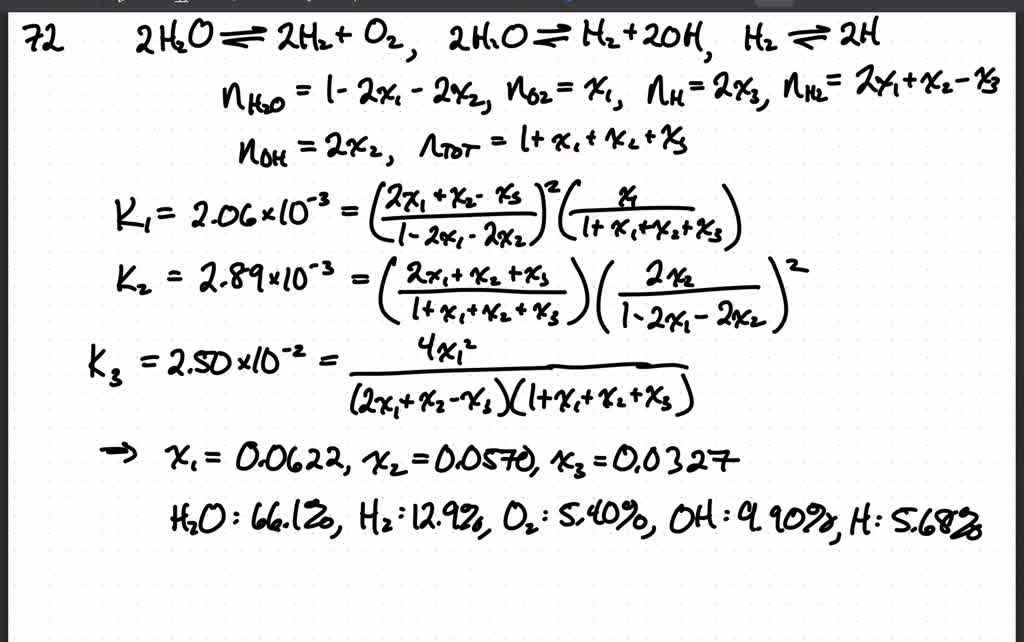 72 2H₂O ⇌ 2H₂ + O₂, 2H₂O ⇌ H₂ + 2OH, H₂ ⇌ 2H
n_H₂O = 1 - 2x₁ - 2x₂, n_O₂ = x₁, n_H = 2x₃, n_H₂ = 2x₁ + x₂ - x₃
n_OH = 2x₂, n_TOT = 1 + x₁ + x₂ + x₃
K₁ = 2.06×10⁻³ = ((2x₁ + x₂ - x₃)/(1 - 2x₁ - 2x₂))² (x₁/(1 + x₁ + x₂ + x₃))
K₂ = 2.89×10⁻³ = ((2x₁ + x₂ + x₃)/(1 + x₁ + x₂ + x₃)) (2x₂/(1 - 2x₁ - 2x₂))²
K₃ = 2.50×10⁻² = 4x₁²/((2x₁ + x₂ - x₃)(1 + x₁ + x₂ + x₃))
→ x₁ = 0.0622, x₂ = 0.0570, x₃ = 0.0327
H₂O: 66.1%, H₂: 12.9%, O₂: 5.40%, OH: 9.90%, H: 5.68%